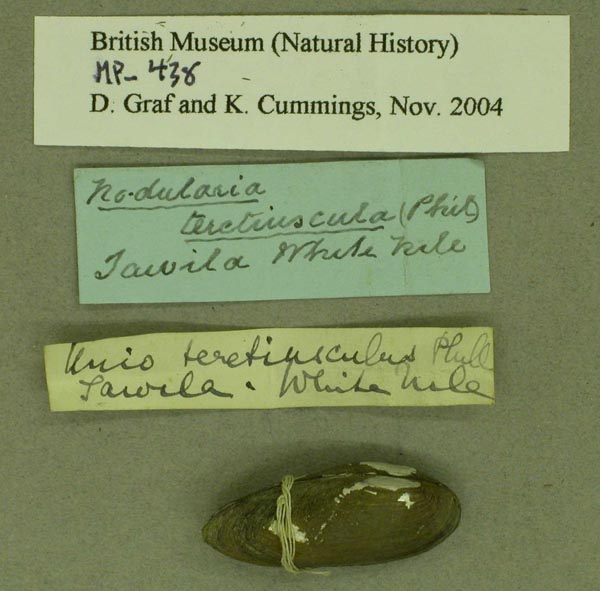 British Museum (Natural History)
MP-438
D. Graf and K. Cummings, Nov. 2004
Nodularia
teretiuscula (Phil)
Tawila White Nile
Unio teretiusculus Phill
Tawila. White Nile